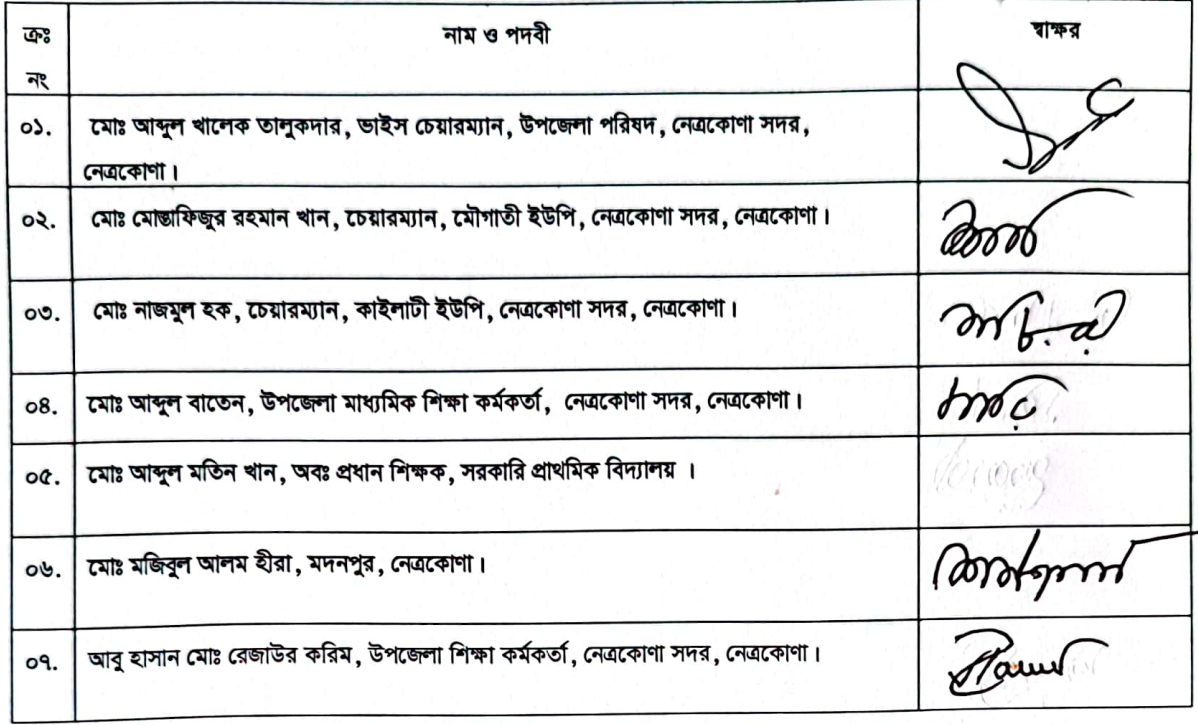 ক্রঃ নং নাম ও পদবী স্বাক্ষর
০১. মোঃ আব্দুল খালেক তালুকদার, ভাইস চেয়ারম্যান, উপজেলা পরিষদ, নেত্রকোণা সদর,
নেত্রকোণা।
০২. মোঃ মোস্তাফিজুর রহমান খান, চেয়ারম্যান, মৌগাতী ইউপি, নেত্রকোণা সদর, নেত্রকোণা।
০৩. মোঃ নাজমুল হক, চেয়ারম্যান, কাইলাটী ইউপি, নেত্রকোণা সদর, নেত্রকোণা।
০৪. মোঃ আব্দুল বাতেন, উপজেলা মাধ্যমিক শিক্ষা কর্মকর্তা, নেত্রকোণা সদর, নেত্রকোণা।
০৫. মোঃ আব্দুল মতিন খান, অবঃ প্রধান শিক্ষক, সরকারি প্রাথমিক বিদ্যালয় ।
০৬. মোঃ মজিবুল আলম হীরা, মদনপুর, নেত্রকোণা।
০৭. আবু হাসান মোঃ রেজাউর করিম, উপজেলা শিক্ষা কর্মকর্তা, নেত্রকোণা সদর, নেত্রকোণা।